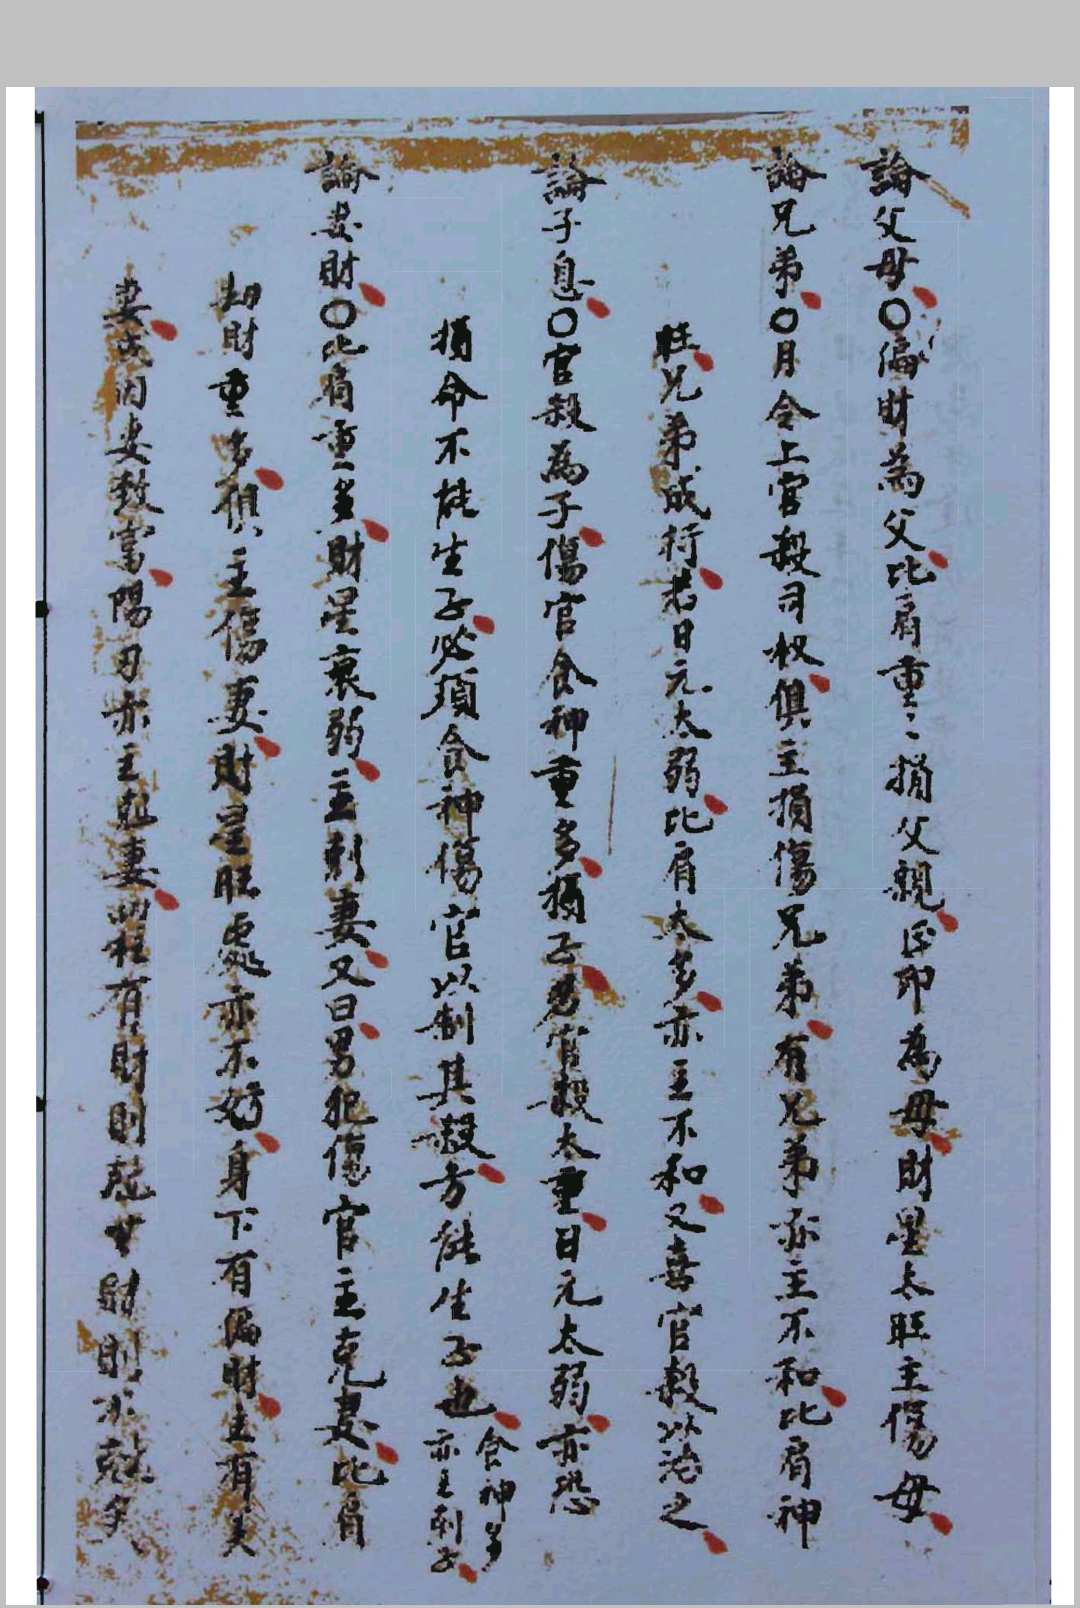 論父母〇偏財為父比肩重々損父親正印為母財星太旺主傷母
論兄弟〇月令上官殺司权俱主損傷兄弟有兄弟亦主不和比肩神
旺兄弟成行若日元太弱比肩太多亦主不和又喜官殺以治之
論子息〇官殺為子傷官食神重多損子男官殺太重日元太弱亦恐
損命不能生子必須食神傷官以制其殺方能生子也
食神多
亦主刺子
論妻財〇比肩重多財星衰弱主刺妻又曰男犯傷官主克妻比肩
劫財重多俱主傷妻財星旺處亦不妨身下有偏財主有美
妻或因妻致富陽刃亦主尅妻 有財則尅無財則不尅